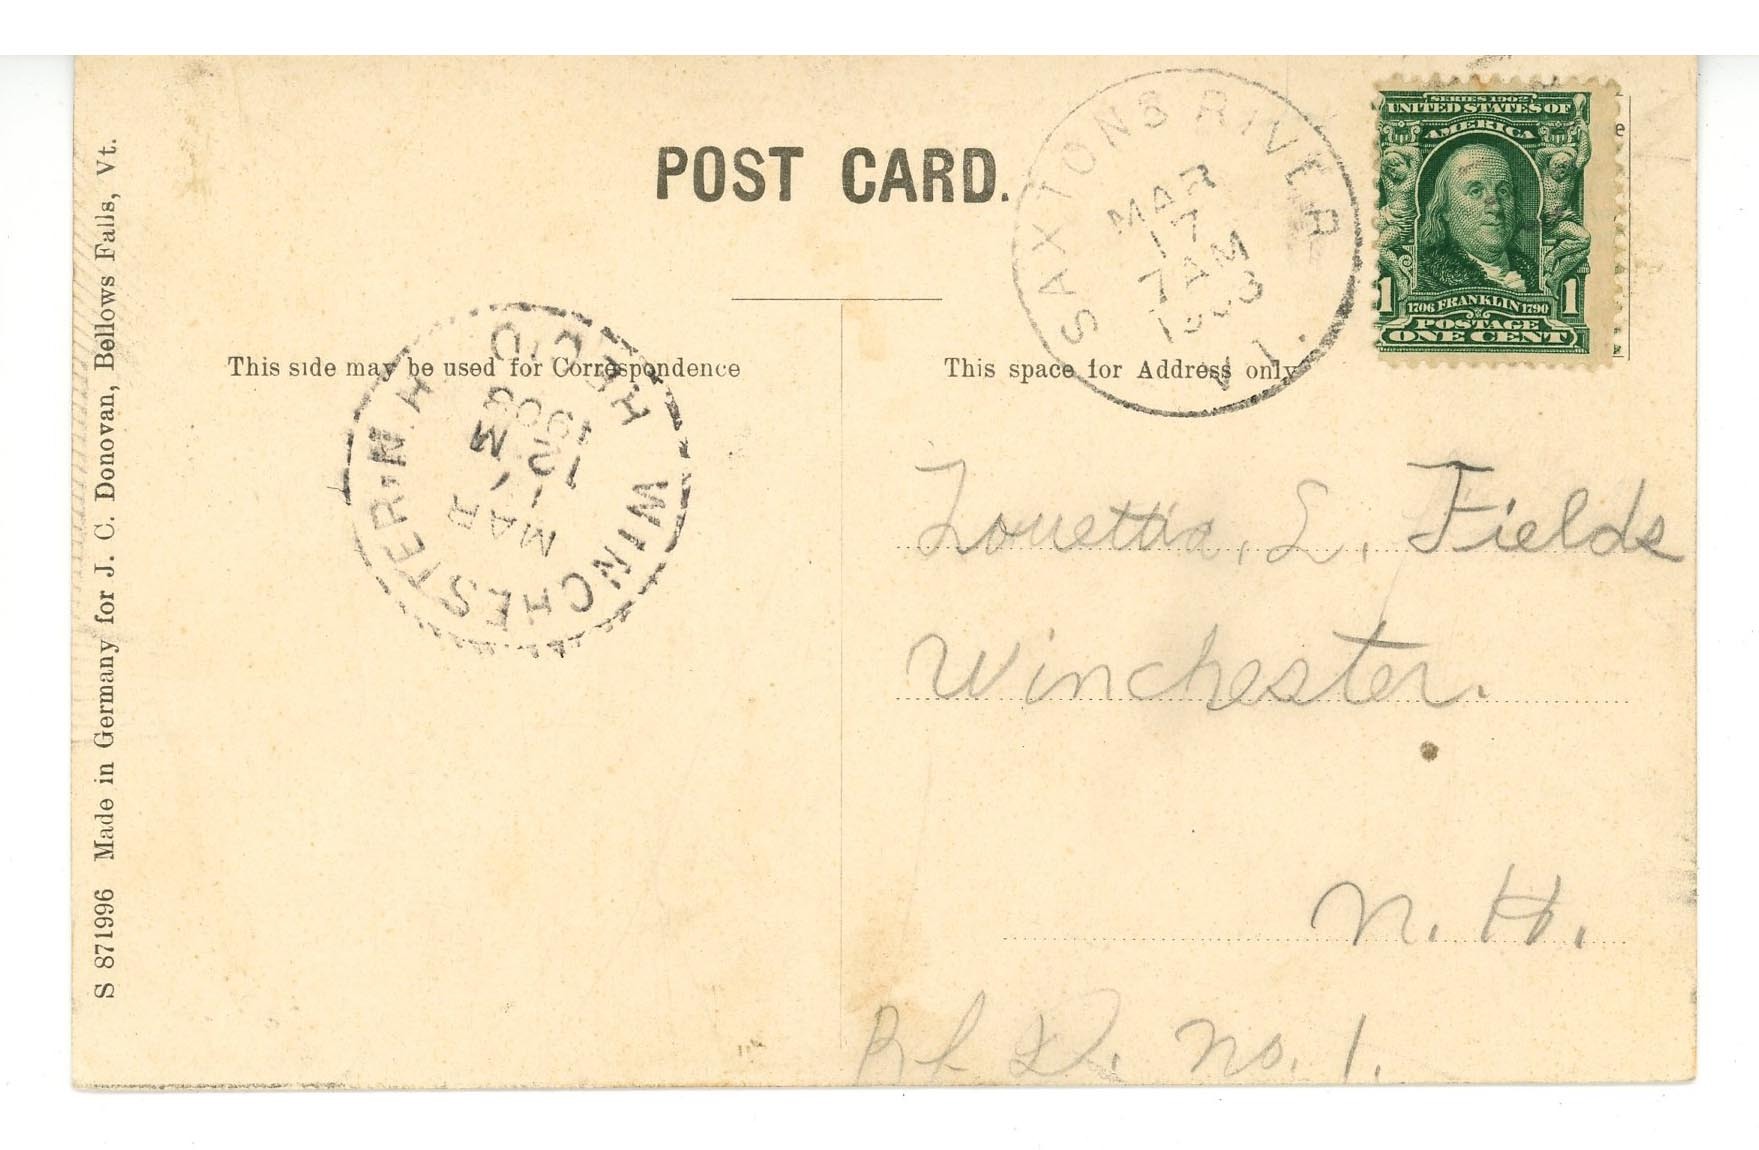 POST CARD.
SAXTONS RIVER
MAR
17
7 AM
VT.
SERIES 1902
UNITED STATES OF
AMERICA
1 1706 FRANKLIN 1790 1
POSTAGE
ONE CENT
This side may be used for Correspondence
This space for Address only
WINCHESTER. N. H.
REC'D
MAR
17
12 M
1908
Louetta, L. Fields
Winchester.
N. H.
Rf D. No. 1.
S 871996 Made in Germany for J. C. Donovan, Bellows Falls, Vt.